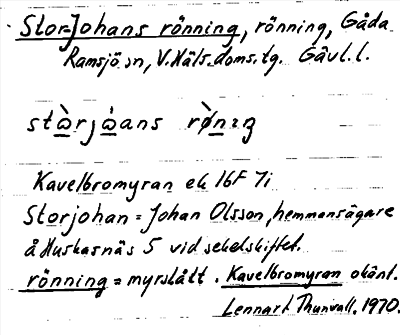 Stor-Johans rönning, rönning, Gåda
Ramsjö sn, V. Häls. doms. tg. Gävl. l.
stὼrjὼans rø̀nıŋ
Kavelbromyran ek 16F 7i
Storjohan = Johan Olsson, hemmansägare
å Huskasnäs 5 vid sekelskiftet.
rönning = myrslått. Kavelbromyran okänt.
Lennart Thunvall. 1970.